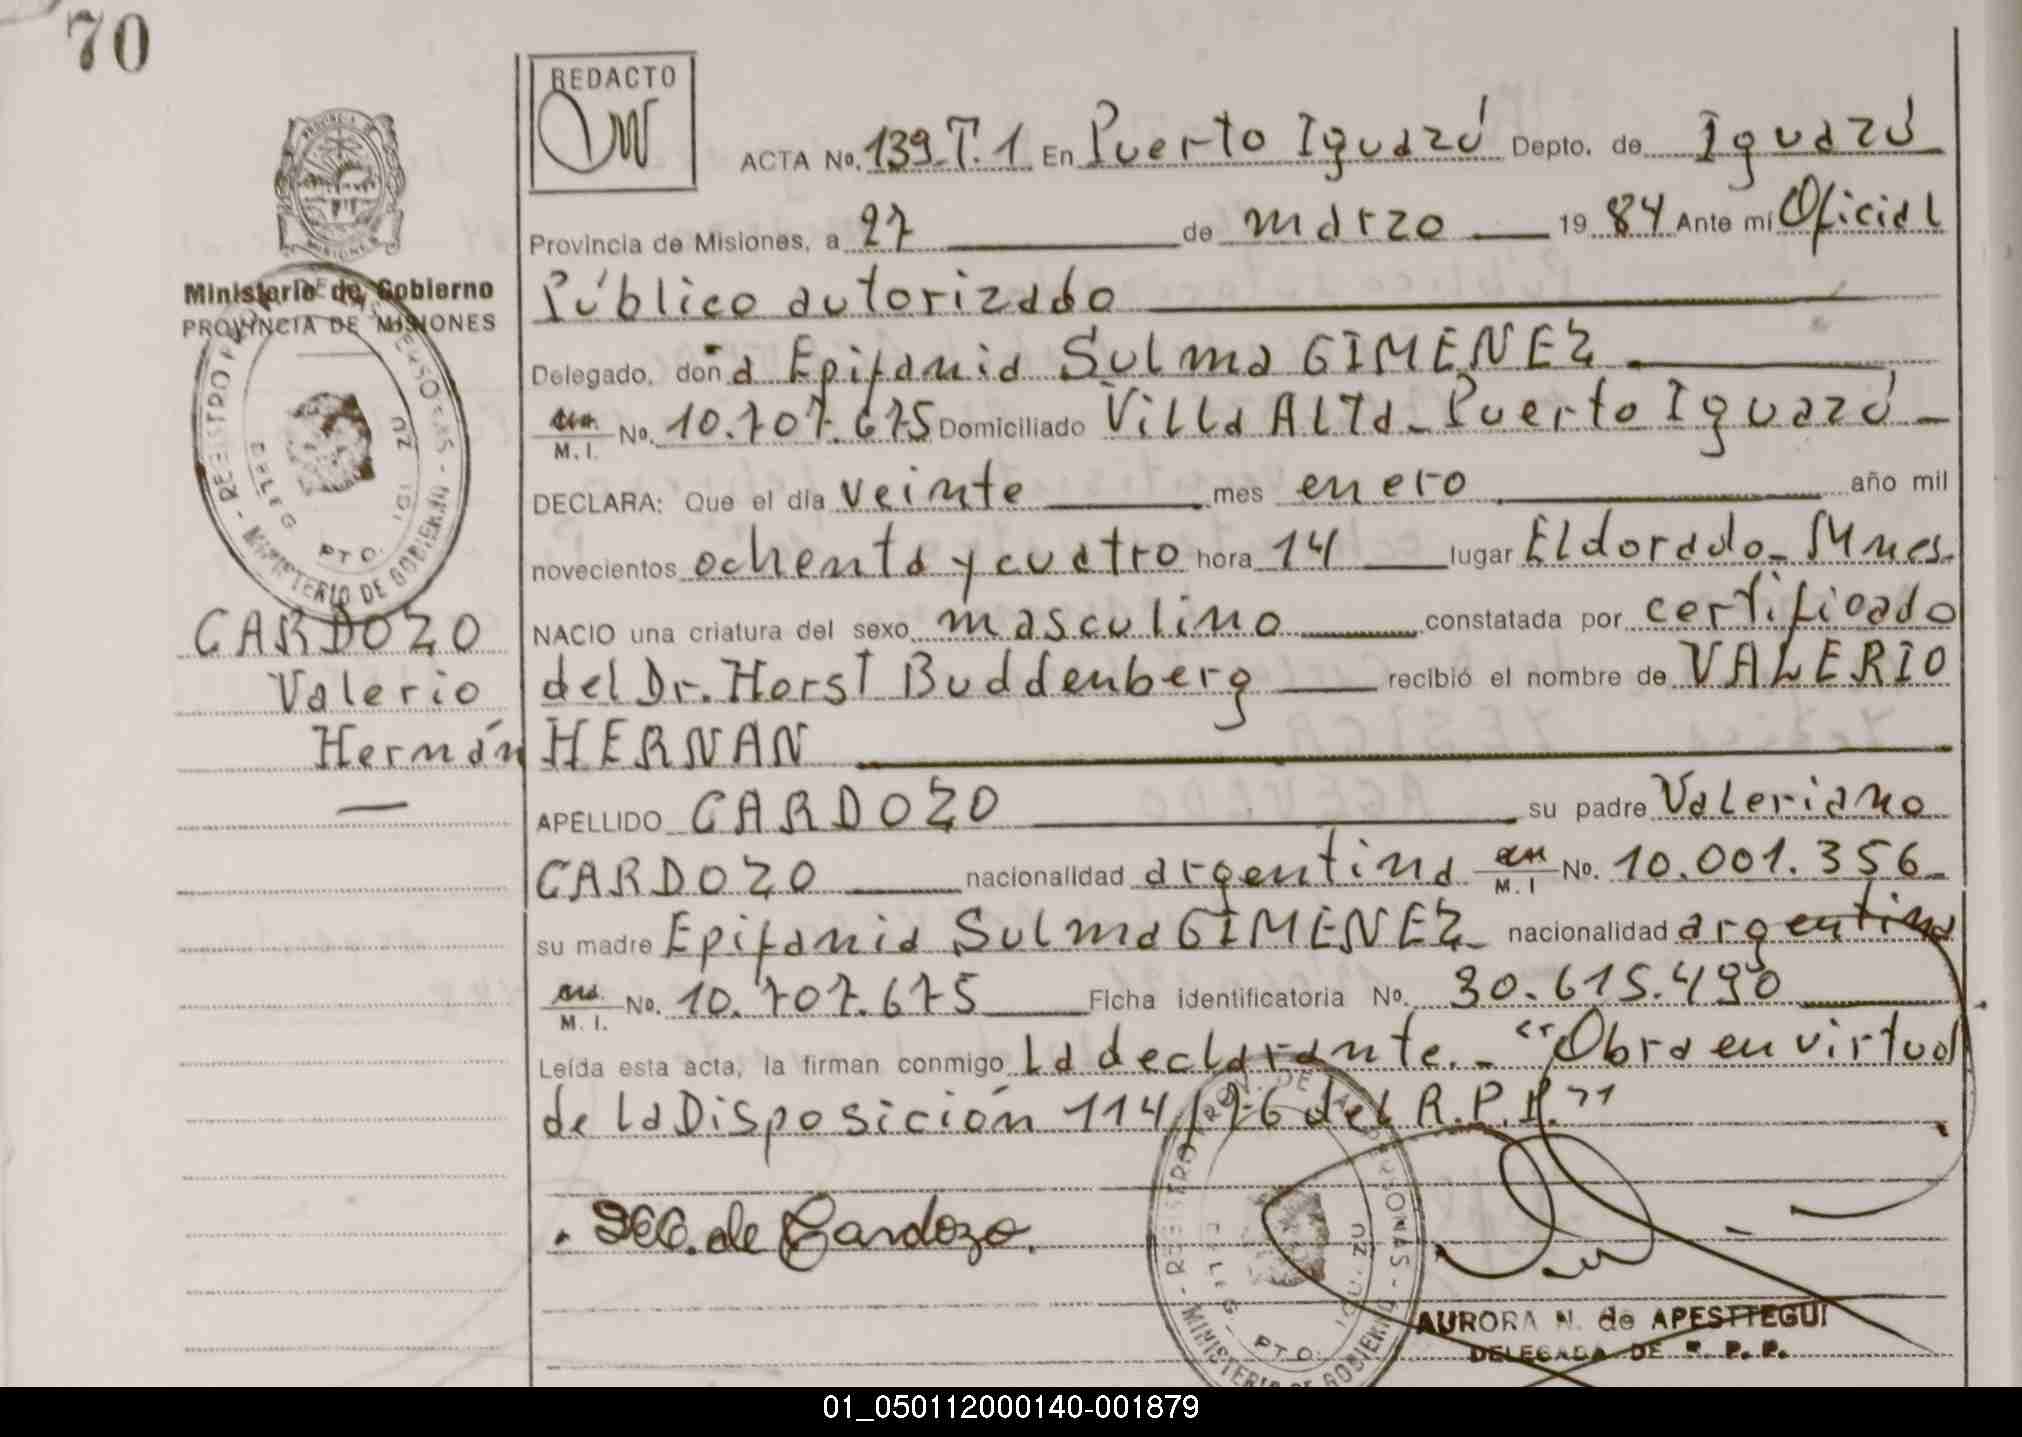 70
REDACTO
ACTA No. 139 T.1 En Puerto Iguazú Depto. de Iguazú
Provincia de Misiones, a 27 de marzo 1984 Ante mí Oficial
Ministerio de Gobierno
PROVINCIA DE MISIONES
Público autorizado
Delegado, doña Epifania Sulma GIMENEZ
M.I. No. 10.707.675 Domiciliado Villa Alta - Puerto Iguazú -
DECLARA: Que el día veinte mes enero año mil
novecientos ochenta y cuatro hora 14 lugar Eldorado - Mnes.
NACIO una criatura del sexo masculino constatada por certificado
del Dr. Horst Buddenberg recibió el nombre de VALERIO
HERNAN
CARDOZO
Valerio
Hernán
APELLIDO CARDOZO su padre Valeriano
CARDOZO nacionalidad argentina M.I No. 10.001.356
su madre Epifania Sulma GIMENEZ nacionalidad argentina
M.I. No. 10.707.675 Ficha identificatoria No. 30.615.490
Leída esta acta, la firman conmigo La declarante.- "Obra en virtud
de la Disposición 114/76 del R.P.P."
de Cardozo.
REGISTRO PROV. DE LAS PERSONAS - MINISTERIO DE GOBIERNO
DELEG. PTO. IGUAZU
AURORA N. de APESTTEGUI
DELEGADA DE R. P. P.
01_050112000140-001879